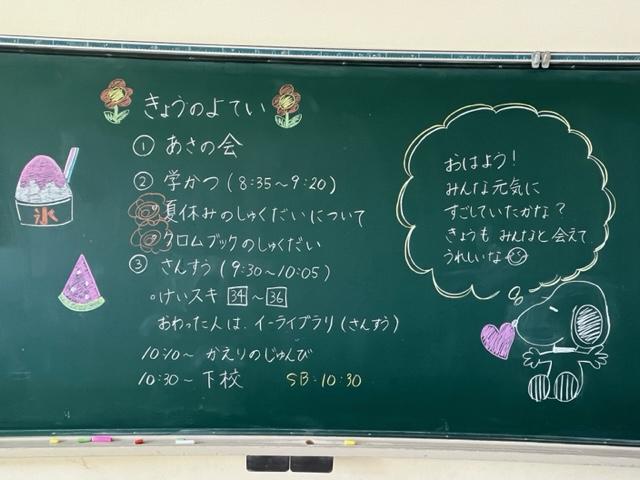 きょうのよてい
① あさの会
② 学かつ(8:35~9:20)
夏休みのしゅくだいについて
クロムブックのしゅくだい
③ さんすう(9:30~10:05)
○けいスキ 34~36
おわった人は、イーライブラリ(さんすう)
10:10~ かえりのじゅんび
10:30~下校 SB・10:30
氷
おはよう!
みんな元気に
すごしていたかな?
きょうも みんなと会えて
うれしいな